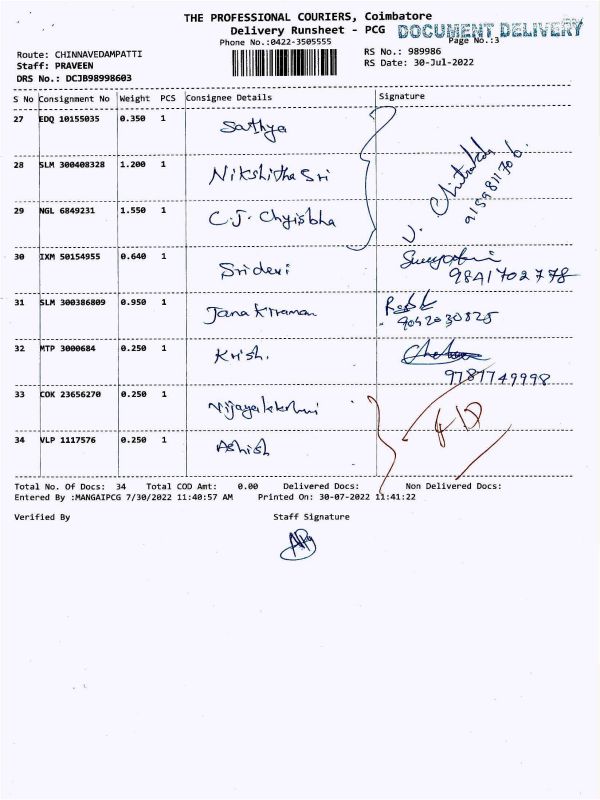 THE PROFESSIONAL COURIERS, Coimbatore
Delivery Runsheet - PCG
DOCUMENT DELIVERY
Phone No.:0422-3505555
Page No.:3
Route: CHINNAVEDAMPATTI
RS No.: 989986
Staff: PRAVEEN
RS Date: 30-Jul-2022
DRS No.: DCJB98998603
S No Consignment No Weight PCS Consignee Details Signature
27 EDQ 10155035 0.350 1 Sathya
28 SLM 300408328 1.200 1 Nikshitha Sri
29 NGL 6849231 1.550 1 C.J.
V. Chitrakala
9159811706
30 IXM 50154955 0.640 1 Sridevi
9841702778
31 SLM 300386809 0.950 1 Jana Kiraman
9042030825
32 MTP 3000684 0.250 1 Krish.
9787749998
33 COK 23656270 0.250 1 Vijayalakshmi
34 VLP 1117576 0.250 1 Ashish
Total No. Of Docs: 34 Total COD Amt: 0.00 Delivered Docs: Non Delivered Docs:
Entered By :MANGAIPCG 7/30/2022 11:40:57 AM Printed On: 30-07-2022 11:41:22
Verified By Staff Signature